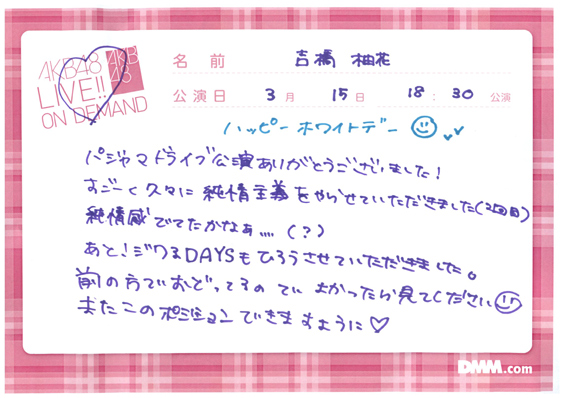 AKB48
LIVE!!
ON DEMAND
AKB
48
名 前 吉橋 柚花
公演日 3月 15日 18:30 公演
ハッピーホワイトデー
パジャマドライブ公演ありがとうございました!
すごーく久々に純情主義をやらせていただきました(2回目)
純情感でてたかなぁ…(?)
あと!ジワるDAYSもひろうさせていただきました。
前の方でおどってるのでよかったら見てください
またこのポジションできますように♡
DMM.com